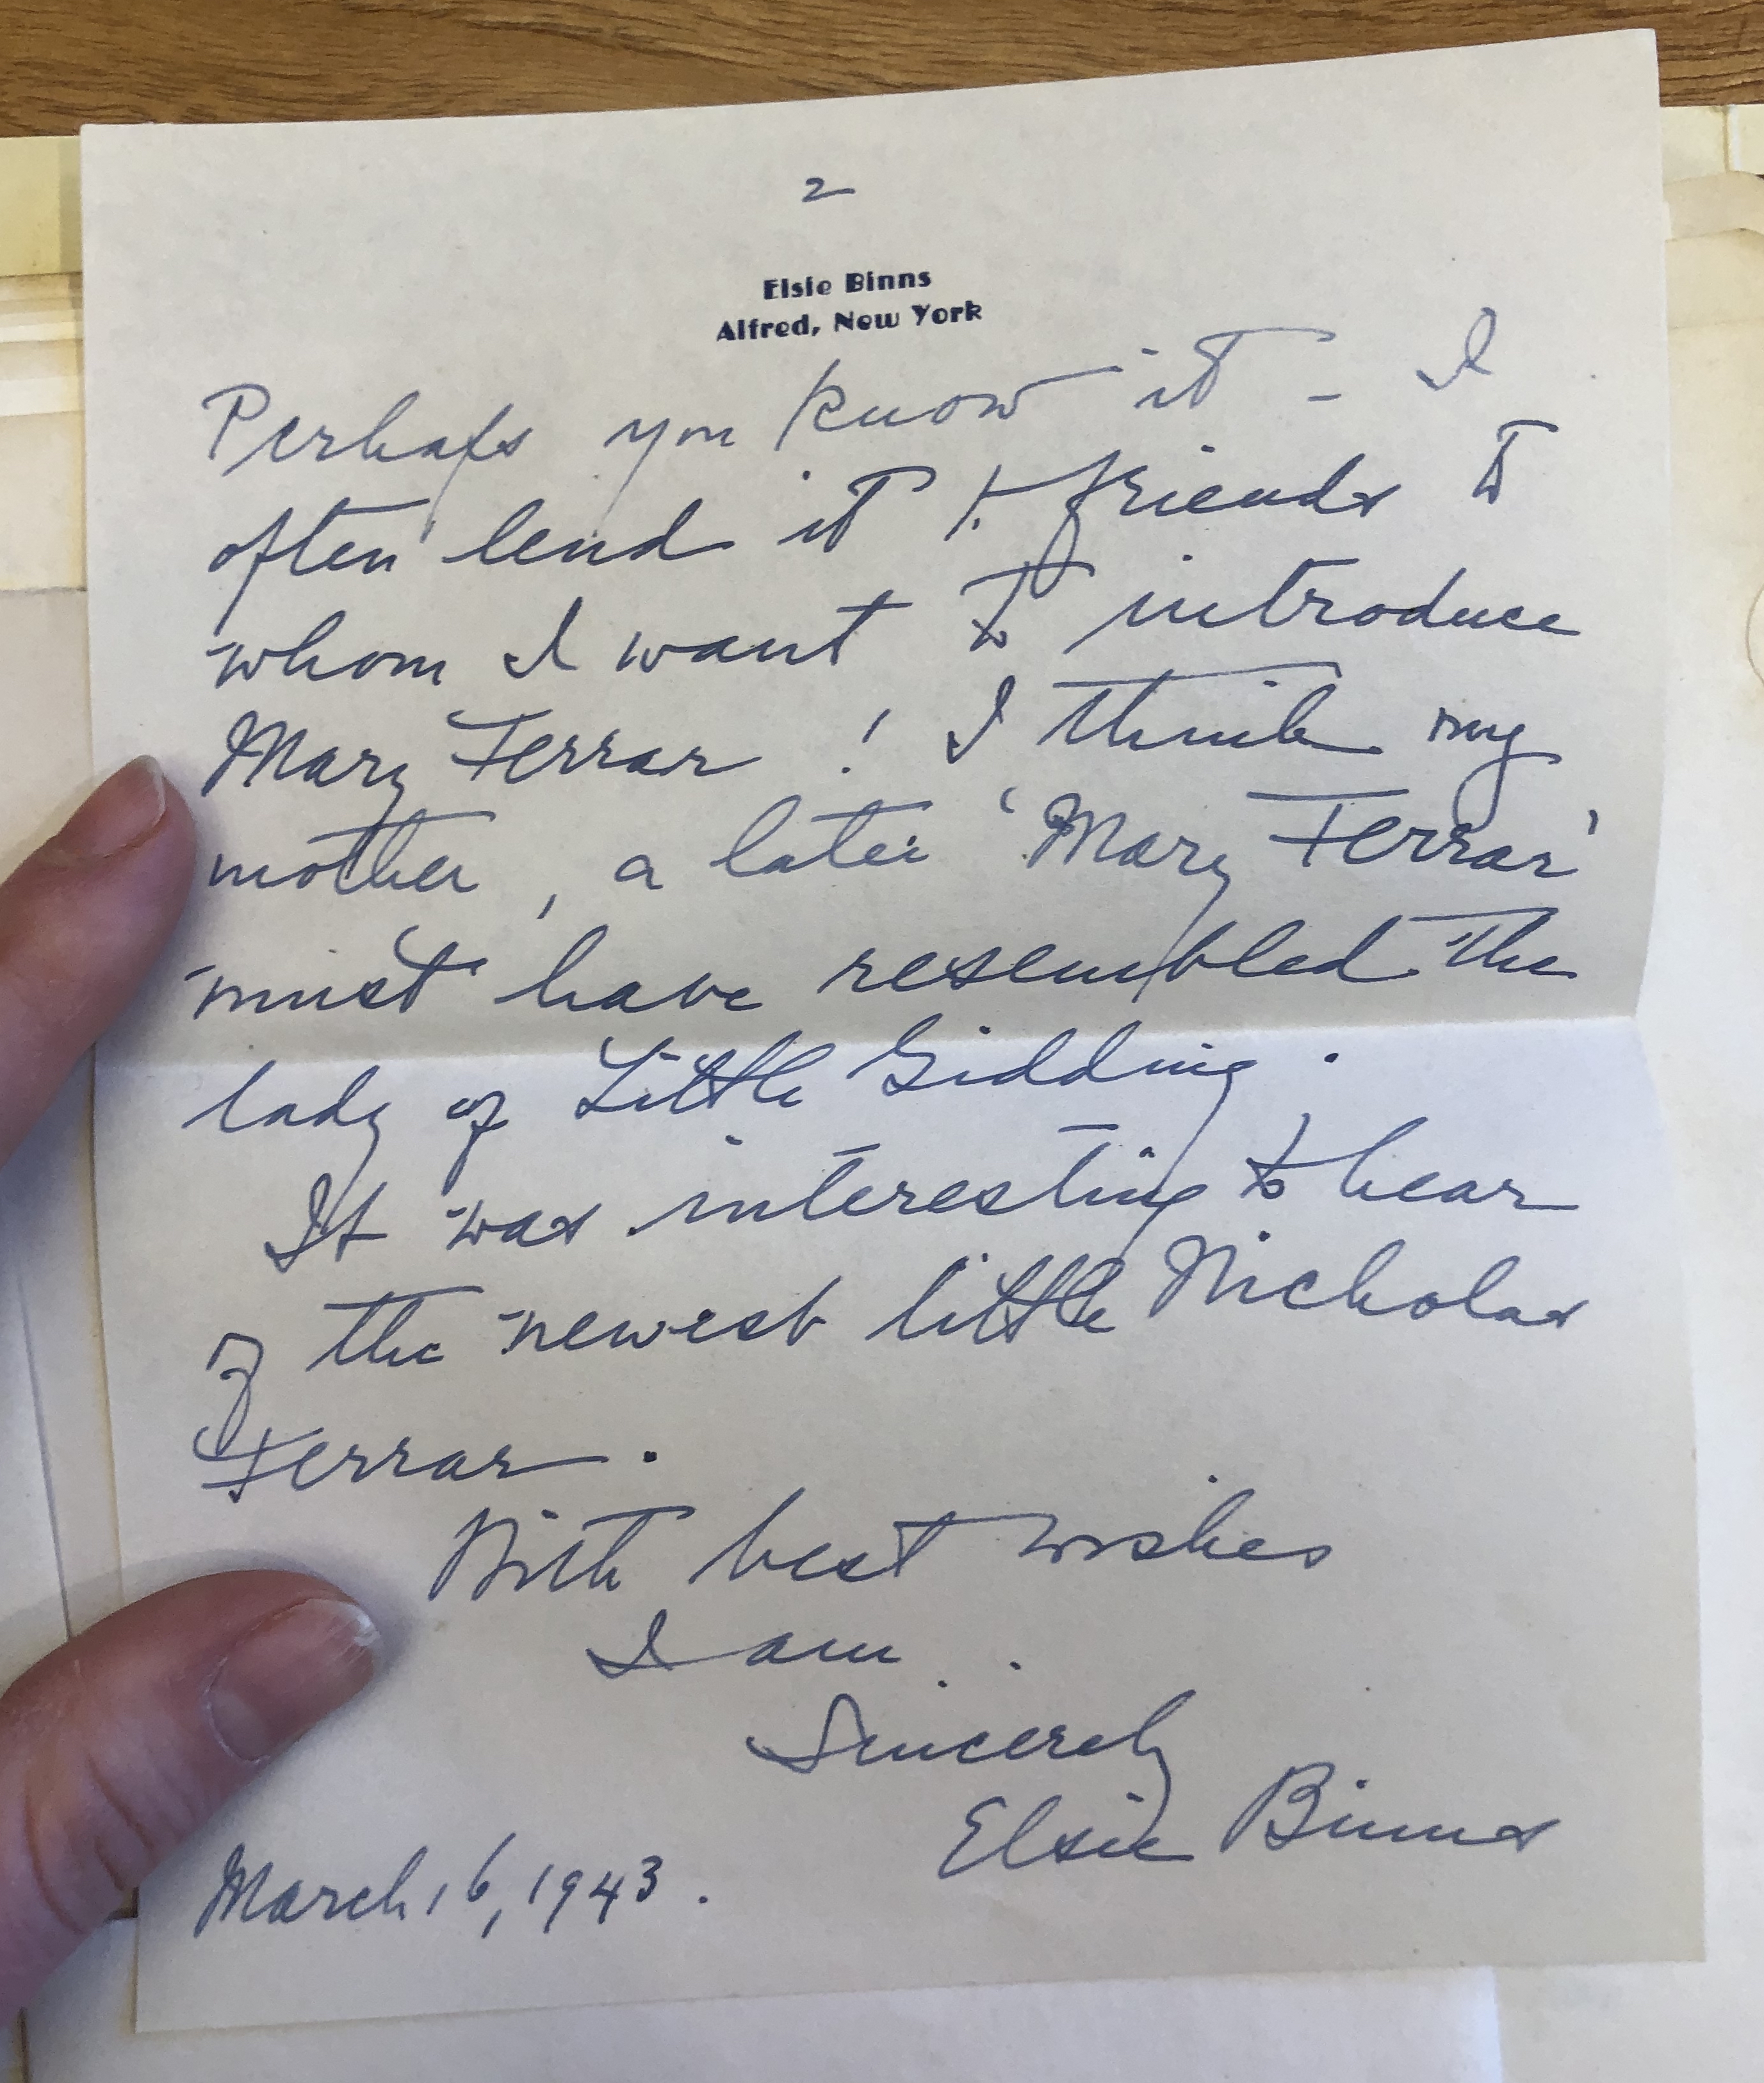 2
Elsie Binns
Alfred, New York
Perhaps you know it - I
often lend it to friends to
whom I want to introduce
Mary Ferrar! I think my
mother, a later 'Mary Ferrar'
must have resembled the
lady of Little Gidding.
It was interesting to hear
of the newest little Nicholas
Ferrar.
With best wishes
I am.
Sincerely
Elsie Binns
March 16, 1943.